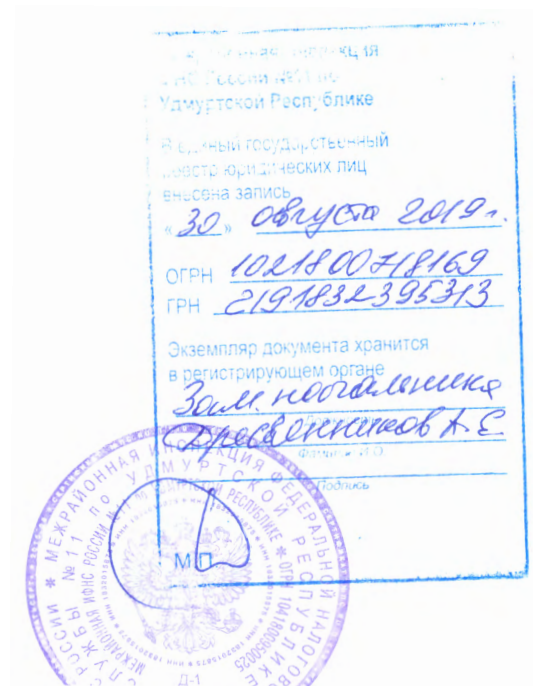 Межрайонная инспекция
ФНС России №11 по
Удмуртской Республике
В единый государственный
реестр юридических лиц
внесена запись
«30» августа 2019 г.
ОГРН 1021800718169
ГРН 2191832395313
Экземпляр документа хранится
в регистрирующем органе
Зам. начальника
Дресвянников А.Е
Фамилия И.О.
Подпись
М.П.
МЕЖРАЙОННАЯ ИНСПЕКЦИЯ ФЕДЕРАЛЬНОЙ НАЛОГОВОЙ
СЛУЖБЫ №11 ПО УДМУРТСКОЙ РЕСПУБЛИКЕ
МЕЖРАЙОННАЯ ИФНС РОССИИ
РЕСПУБЛИКЕ * ОГРН 1041800950025
Д-1